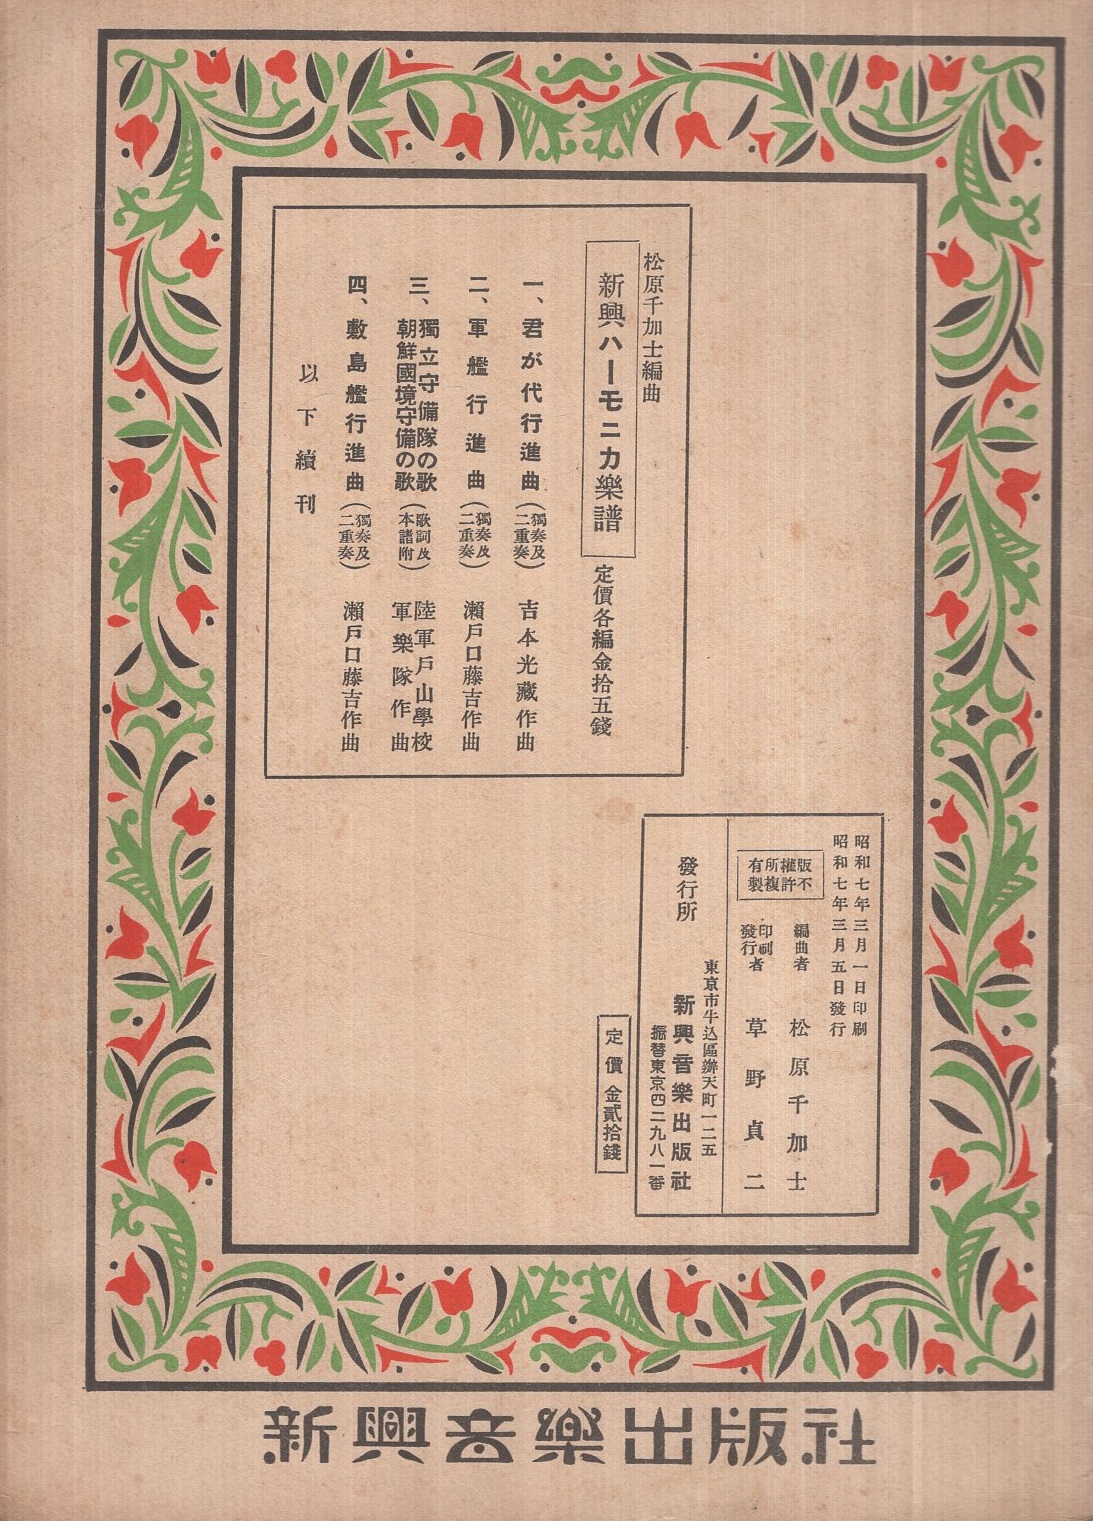 松原千加士編曲
新興ハーモニカ樂譜 定價各編金拾五錢
一、君が代行進曲(獨奏及二重奏) 吉本光藏作曲
二、軍艦行進曲(獨奏及二重奏) 瀨戶口藤吉作曲
三、獨立守備隊の歌
朝鮮國境守備の歌(歌詞及本譜附) 陸軍戶山學校軍樂隊作曲
四、敷島艦行進曲(獨奏及二重奏) 瀨戶口藤吉作曲
以下續刊
昭和七年三月一日印刷
昭和七年三月五日發行
版權所有
不許複製
編曲者 松原千加士
印刷發行者 草野貞二
東京市牛込區辨天町一二五
發行所 新興音樂出版社
振替東京四二九八一番
定價金貳拾錢
新興音樂出版社